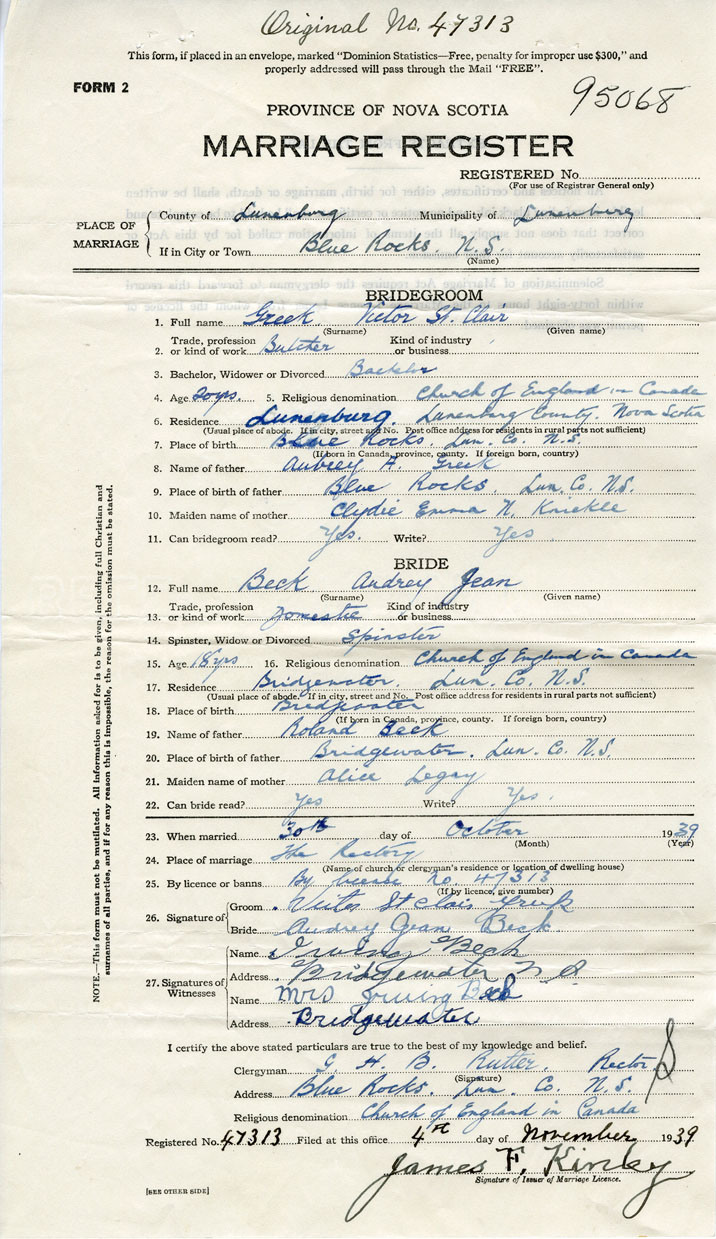 Original No. 47313
This form, if placed in an envelope, marked "Dominion Statistics—Free, penalty for improper use $300," and
properly addressed will pass through the Mail "FREE".
FORM 2
95068
PROVINCE OF NOVA SCOTIA
MARRIAGE REGISTER
REGISTERED No.
(For use of Registrar General only)
PLACE OF MARRIAGE
County of Lunenburg Municipality of Lunenburg
If in City or Town Blue Rocks. N.S.
(Name)
BRIDEGROOM
1. Full name Greek Victor St. Clair
(Surname) (Given name)
2. Trade, profession or kind of work Butcher Kind of industry or business
3. Bachelor, Widower or Divorced Bachelor
4. Age 20 yrs. 5. Religious denomination Church of England in Canada
6. Residence Lunenburg. Lunenburg County. Nova Scotia
(Usual place of abode. If in city, street and No. Post office address for residents in rural parts not sufficient)
7. Place of birth Blue Rocks. Lun. Co. N.S.
(If born in Canada, province, county. If foreign born, country)
8. Name of father Aubrey A. Greek
9. Place of birth of father Blue Rocks. Lun. Co. N.S.
10. Maiden name of mother Clydie Emma N. Knickle
11. Can bridegroom read? Yes. Write? Yes
BRIDE
12. Full name Beck Audrey Jean
(Surname) (Given name)
13. Trade, profession or kind of work Domestic Kind of industry or business
14. Spinster, Widow or Divorced Spinster
15. Age 18 yrs 16. Religious denomination Church of England in Canada
17. Residence Bridgewater. Lun. Co. N.S.
(Usual place of abode. If in city, street and No. Post office address for residents in rural parts not sufficient)
18. Place of birth Bridgewater
(If born in Canada, province, county. If foreign born, country)
19. Name of father Roland Beck
20. Place of birth of father Bridgewater. Lun. Co. N.S.
21. Maiden name of mother Alice Legay
22. Can bride read? Yes Write? Yes.
23. When married 30th day of October 1939
(Month) (Year)
24. Place of marriage The Rectory
(Name of church or clergyman's residence or location of dwelling house)
25. By licence or banns By license no. 47313
(If by licence, give number)
26. Signature of
Groom Victor St Clair Greek
Bride Audrey Jean Beck
27. Signatures of Witnesses
Name Irving Beck
Address Bridgewater N S
Name Mrs Irving Beck
Address Bridgewater
I certify the above stated particulars are true to the best of my knowledge and belief.
Clergyman G. H. B. Rutter. Rector
(Signature)
Address Blue Rocks. Lun. Co. N.S.
Religious denomination Church of England in Canada
Registered No. 47313 Filed at this office 4th day of November 1939
James F. Kinley
Signature of Issuer of Marriage Licence.
[SEE OTHER SIDE]
NOTE.—This form must not be mutilated. All information asked for is to be given, including full Christian and
surnames of all parties, and if for any reason this is impossible, the reason for the omission must be stated.